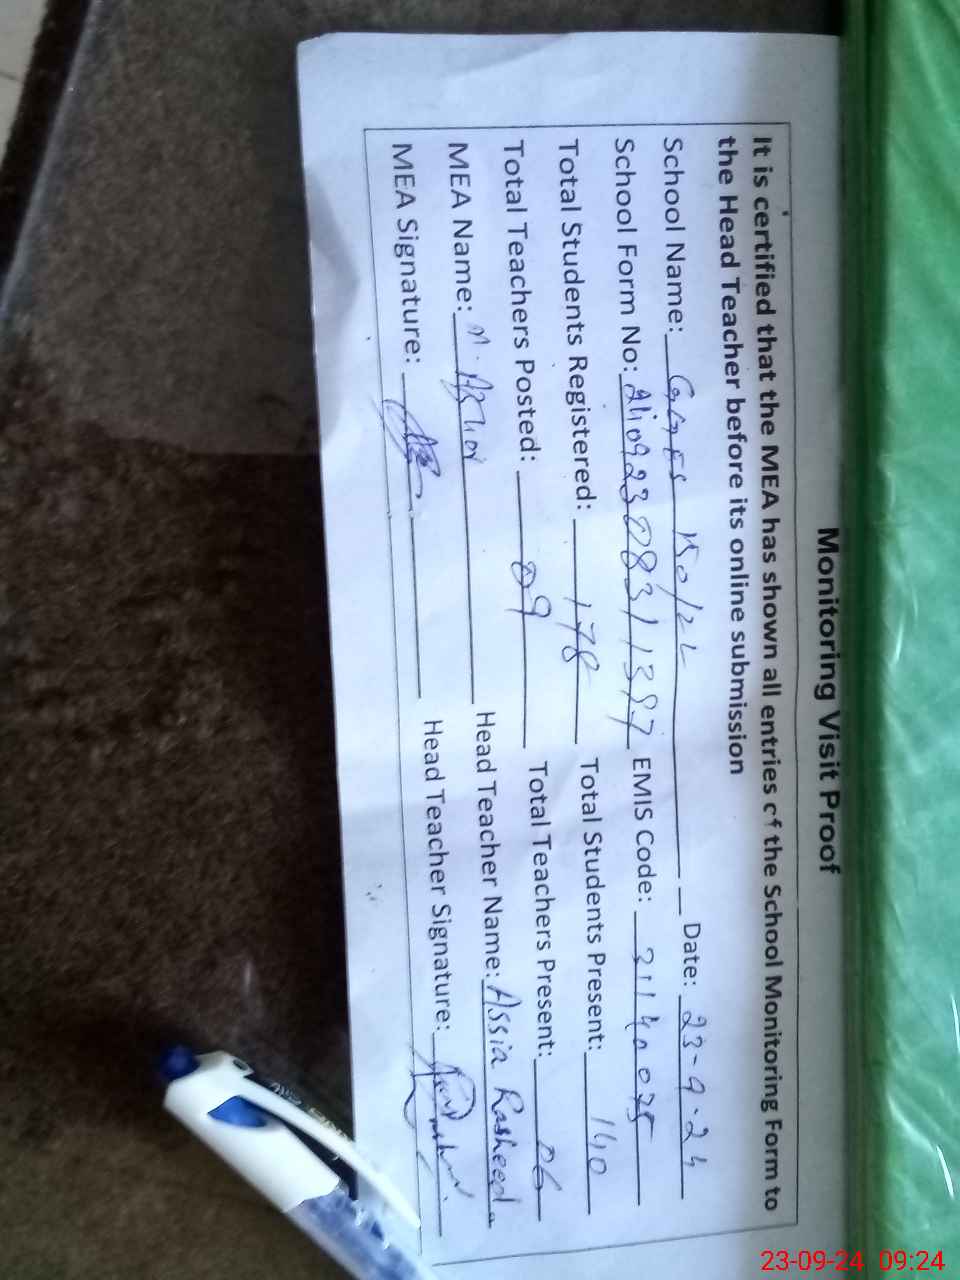 Monitoring Visit Proof
It is certified that the MEA has shown all entries of the School Monitoring Form to
the Head Teacher before its online submission
School Name: 150/2L Date: 23-9-24
School Form No: EMIS Code: 31140075
Total Students Registered: 178 Total Students Present: 140
Total Teachers Posted: 09 Total Teachers Present: 06
MEA Name: Head Teacher Name: Assia Rasheed
MEA Signature: Head Teacher Signature:
23-09-24 09:24